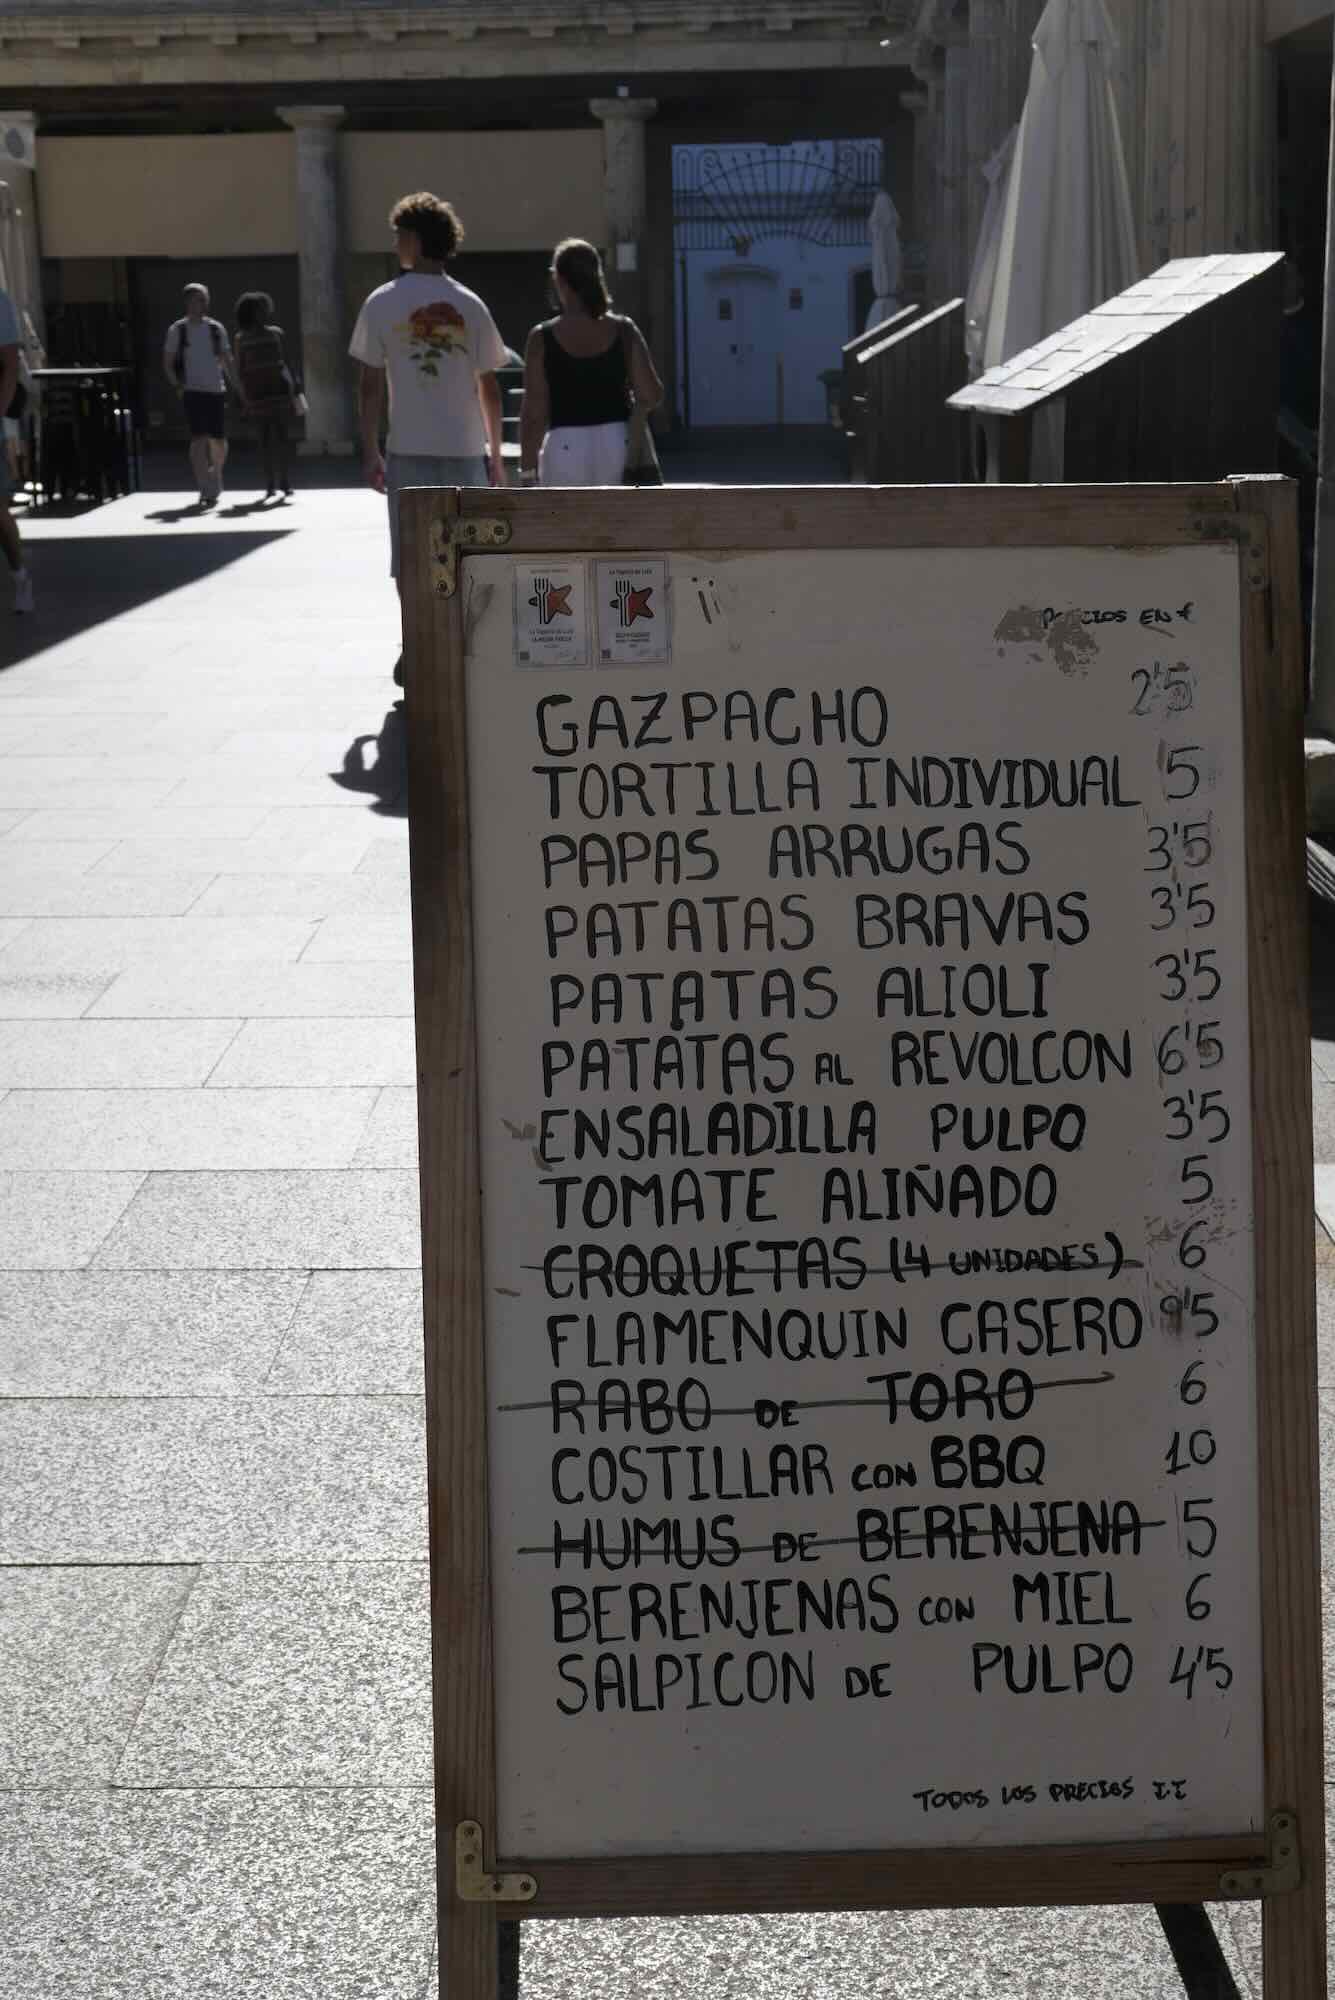 La Tapería de Lulú
PRECIOS EN €
GAZPACHO 2'5
TORTILLA INDIVIDUAL 5
PAPAS ARRUGAS 3'5
PATATAS BRAVAS 3'5
PATATAS ALIOLI 3'5
PATATAS AL REVOLCON 6'5
ENSALADILLA PULPO 3'5
TOMATE ALIÑADO 5
CROQUETAS (4 UNIDADES) 6
FLAMENQUIN CASERO 9'5
RABO DE TORO 6
COSTILLAR CON BBQ 10
HUMUS DE BERENJENA 5
BERENJENAS CON MIEL 6
SALPICON DE PULPO 4'5
TODOS LOS PRECIOS I.I